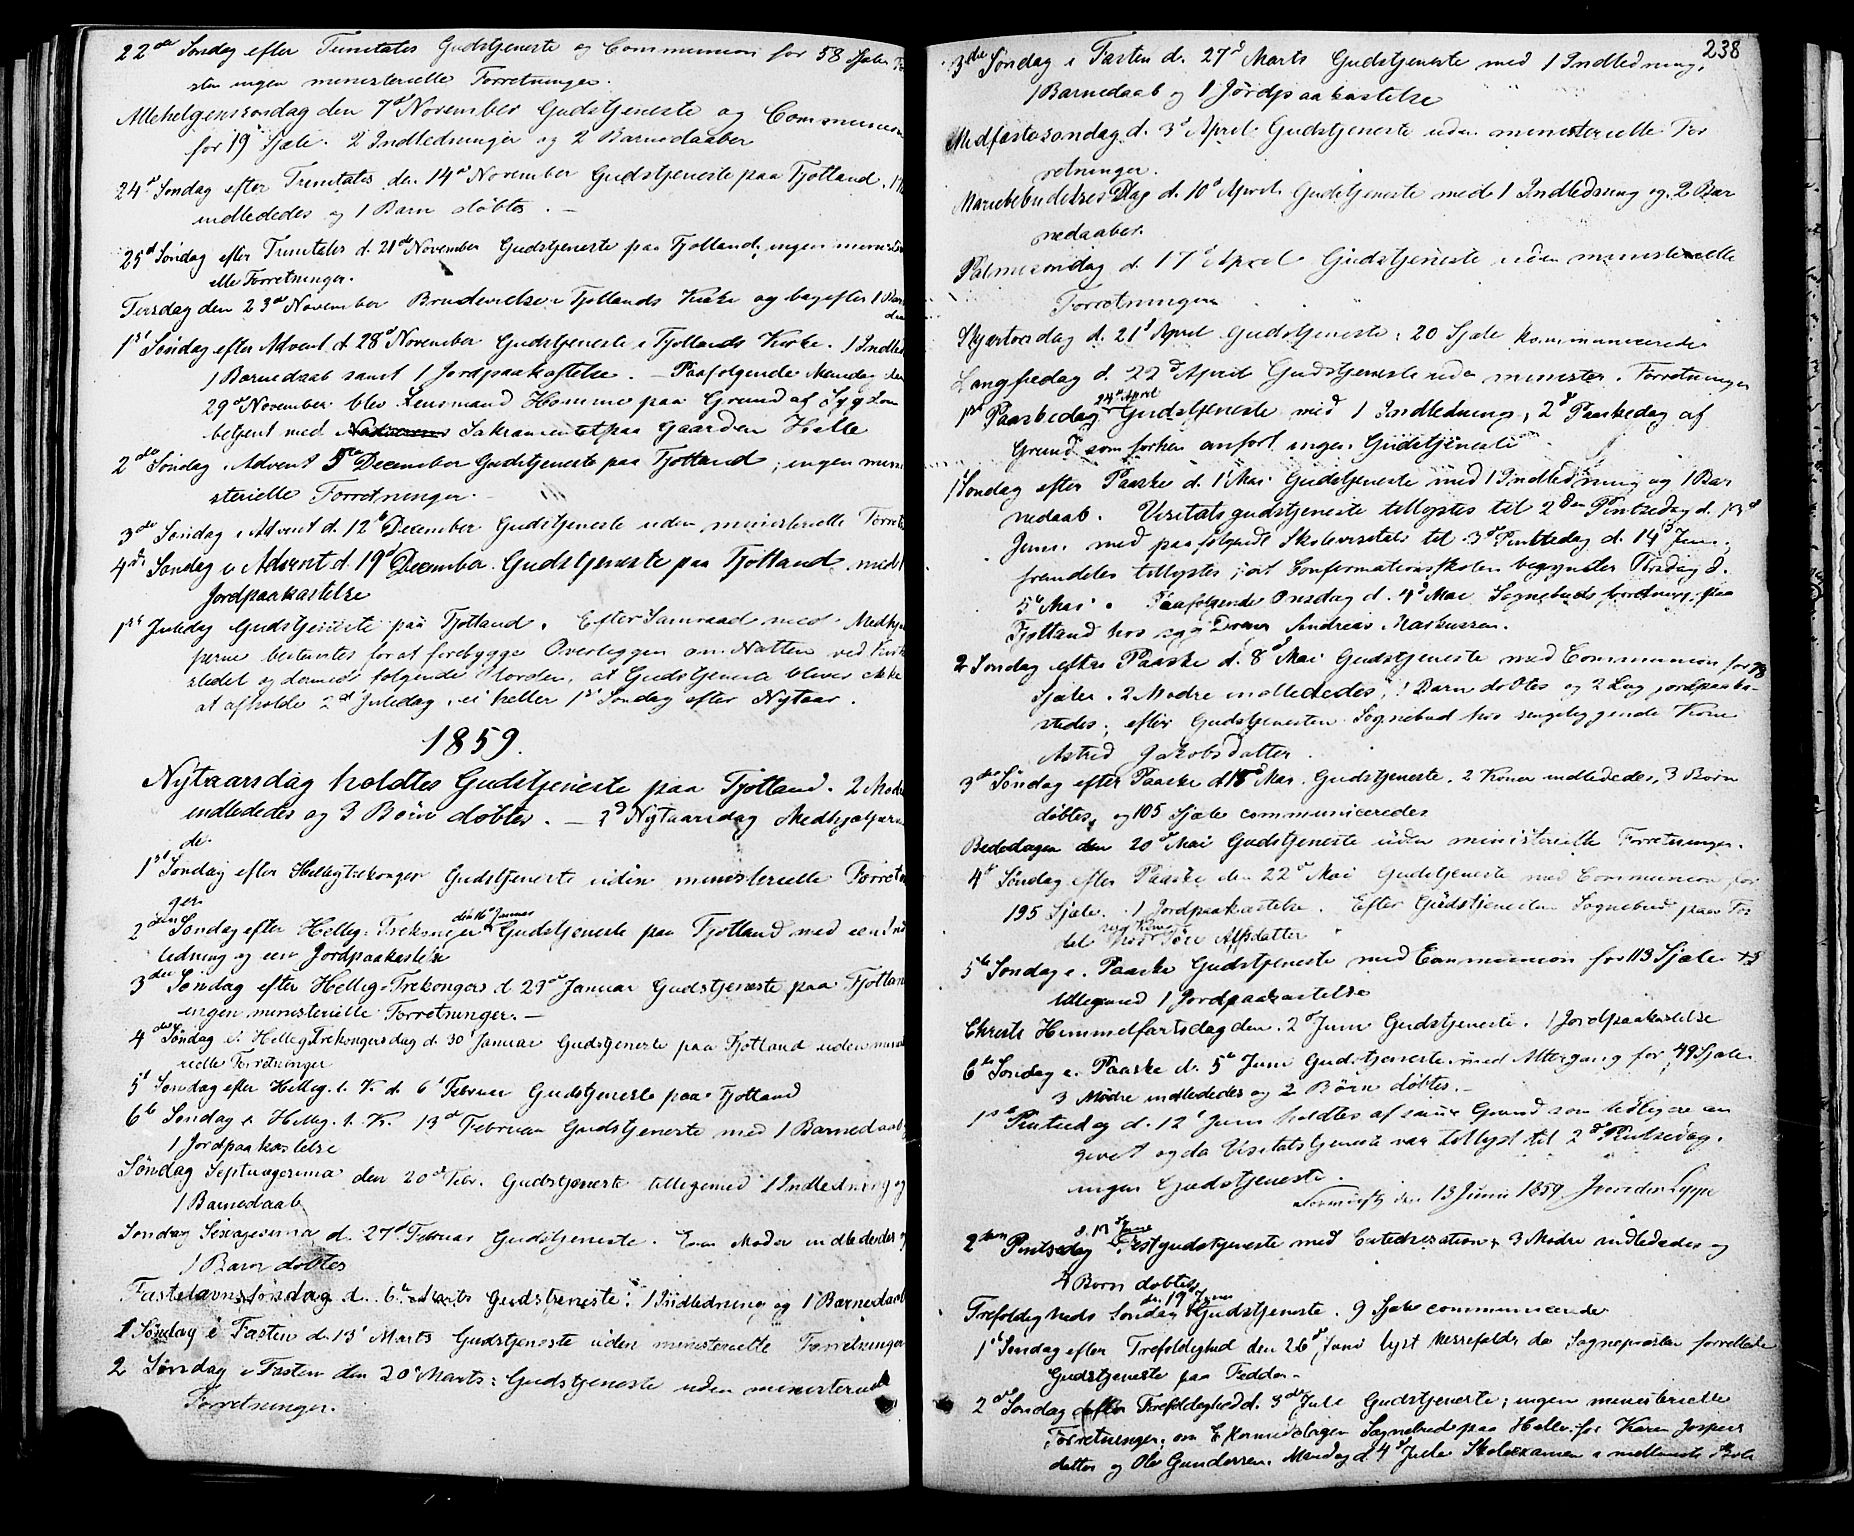 22de Søndag efter Trinitatis Gudstjeneste og Communion for 58 Sjæle
sten ingen ministerielle Forretninger.
Allehelgenssøndag den 7de November Gudstjeneste og Communion
for 19 Sjæle. 2 Indledninger og 2 Barnedaaber
24de Søndag efter Trinitatis den 14de November Gudstjeneste paa Fjotland.
indlededes og 1 Barn døbtes. —
25d Søndag efter Trinitatis d. 21de November Gudstjeneste paa Fjotland; ingen ministeri
elle Forretninger.
Tirsdag den 23de November Brudevielse i Fjotlands Kirke og bagefter 1 Bar
1st Søndag efter Advent d. 28de November Gudstjeneste i Fjotlands Kirke. 1 Indled
1 Barnedaab samt 1 Jordpaakastelse. — Paafølgende Mandag den
29de November blev Lensmand Homme paa Grund af Sygdom
betjent med Sakramentet paa Gaarden Helle
2den Søndag i Advent 5te December Gudstjeneste paa Fjotland; ingen mini
sterielle Forretninger.
3die Søndag i Advent d. 12te December Gudstjeneste uden ministerielle Forret
4de Søndag i Advent d. 19de December. Gudstjeneste paa Fjotland med 1
Jordpaakastelse
1ste Juledag Gudstjeneste paa Fjotland. Efter Samraad med Medhjæl
perne bestemtes for at forebygge Overliggen om Natten ved Kirke
stedet og dermed følgende Uorden, at Gudstjeneste bliver ikke
at afholde 2den Juledag, ei heller 1st Søndag efter Nytaar.
1859.
Nytaarsdag holdtes Gudstjeneste paa Fjotland. 2 Mødre
indlededes og 3 Børn døbtes. — 2d Nytaarsdag Medhjælperne
de.
1st Søndag efter Helligtrekonger Gudstjeneste uden ministerielle Forretnin
ger.
2den Søndag efter Hellig-Trekonger den 16de Januar Gudstjeneste paa Fjotland med een Ind
ledning og een Jordpaakastelse
3die Søndag efter Hellig-Trekonger d. 23de Januar Gudstjeneste paa Fjotland
ingen ministerielle Forretninger. —
4de Søndag e. Helligtrekongersdag d. 30 Januar Gudstjeneste paa Fjotland uden ministe
rielle Forretninger
5te Søndag efter Hellig. t. K. d. 6te Februar Gudstjeneste paa Fjotland
6te Søndag e. Hellig. t. K. 13de Februar Gudstjeneste med 1 Barnedaab
1 Jordpaakastelse
Søndag Septuagesima den 20de Febr. Gudstjeneste tilligemed 1 Indledning og
1 Barnedaab
Søndag Sexagesima d. 27de Februar Gudstjeneste. Een Moder indlededes og
1 Barn døbtes
Fastelavnssøndag d. 6te Marts Gudstjeneste: 1 Indledning og 1 Barnedaab
1 Søndag i Fasten d. 13de Marts Gudstjeneste uden ministerielle Forretninger
2 Søndag i Fasten den 20de Marts: Gudstjeneste uden ministerielle
Forretninger.
238
3die Søndag i Fasten d. 27d Marts Gudstjeneste med 1 Indledning,
1 Barnedaab og 1 Jordpaakastelse
Midfastesøndag d. 3d April. Gudstjeneste uden ministerielle For
retninger.
Mariebebudelses Dag d. 10d April. Gudstjeneste med 1 Indledning og 2 Bar
nedaaber.
Palmesøndag d. 17d April Gudstjeneste uden ministerielle
Forretninger
Skjærtorsdag d. 21d April Gudstjeneste; 20 Sjæle kommunicerede
Langfredag d. 22d April Gudstjeneste uden minister. Forretninger
1st Paaskedag 24de April Gudstjeneste med 1 Indledning, 2d Paaskedag af
Grund som forhen anført ingen Gudstjeneste
1 Søndag efter Paaske d. 1 Mai Gudstjeneste med 1 Indledning og 1 Bar
nedaab. Visitatsgudstjeneste tillystes til 2den Pintsedag d. 13d
Juni med paafølgende Skolevisitats til 3d Pintsedag d. 14d Juni,
fremdeles tillystes, at Confirmationsskolen begynder Torsdag d.
5te Mai. Paafølgende Onsdag d. 4d Mai Sognebuds forretning paa
Fjotland hos syg Dreng Andreas Markussen.
2 Søndag efter Paaske d. 8d Mai Gudstjeneste med Communion for 78
Sjæle. 2 Mødre indlededes, 1 Barn døbtes og 2 Lig jordpaaka-
stedes; efter Gudstjenesten Sognebud hos sengeliggende Kone
Astrid Jakobsdatter.
3die Søndag efter Paaske d. 15d Mai. Gudstjeneste. 2 Koner indlededes, 3 Børn
døbtes og 105 Sjæle communiceredes
Bededagen den 20de Mai Gudstjeneste uden ministerielle Forretninger.
4d Søndag efter Paaske den 22de Mai Gudstjeneste med Communion for
195 Sjæle. 1 Jordpaakastelse. Efter Gudstjenesten Sognebud paa
hos syg Kone Alfsdatter
5te Søndag e. Paaske Gudstjeneste med Communion for 113 Sjæle
tilligemed 1 Jordpaakastelse
Christi Himmelfartsdag den 2de Juni Gudstjeneste. 1 Jordpaakastelse
6te Søndag e. Paaske d. 5te Juni Gudstjeneste med Altergang for 49 Sjæle
3 Mødre indlededes og 2 Børn døbtes. —
1ste Pintsedag d. 12te Juni holdtes af samme Grund som tidligere an
givet og da Visitatstjeneste var tillyst til 2d Pintsedag,
ingen Gudstjeneste.
den 13 Juni 1859. J. von der Lippe
2den Pintsedag d. 13 Juni Festgudstjeneste med Catechisation 3 Mødre indlededes og
4 Børn døbtes
Trefoldigheds Søndag den 19de Juni Gudstjeneste. 9 Sjæle communicerede
1d Søndag efter Trefoldighed den 26d Juni lyst Messefald, da Sognepræsten forrettede
Gudstjeneste paa Fedde. —
2d Søndag efter Trefoldighed d. 3die Juli Gudstjeneste; ingen ministerielle
Forretninger; om Eftermiddagen Sognebud paa Helle for Karen Jospers
datter og Ole Gundersen. Mandag d. 4d Julie Skoleexamen i mellemste Skole